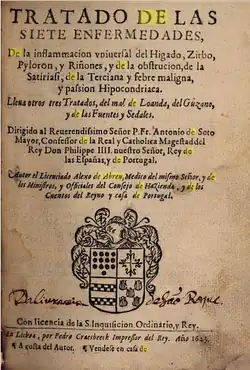 TRATADO DE LAS
SIETE ENFERMEDADES,
De la inflammacion vniuersal del Higado, Zirbo,
Pyloron, y Riñones, y de la obstrucion, de la
Satiriasi, de la Terciana y febre maligna,
y passion Hipocondriaca.
Lleua otros tres Tratados, del mal de Loanda, del Guzano,
y de las Fuentes y Sedales.
Dirigido al Reuerendissimo Señor P. Fr. Antonio de Soto
Mayor, Confessor de la Real y Catholica Magestad del
Rey Don Philippe IIII. nuestro Señor, Rey de
las Españas, y de Portugal.
Autor el Licenciado Alexo de Abreu, Medico del mismo Señor, y de
los Ministros, y Officiales del Consejo de Hazienda, y de los
Cuentos del Reyno y casa de Portugal.
Da liuraria de São Roque
Con licencia de la S. Inquisicion Ordinario, y Rey.
En Lisboa, por Pedro Craesbeeck Impressor del Rey. Año 1623.
A costa del Autor. Vendese en casa de